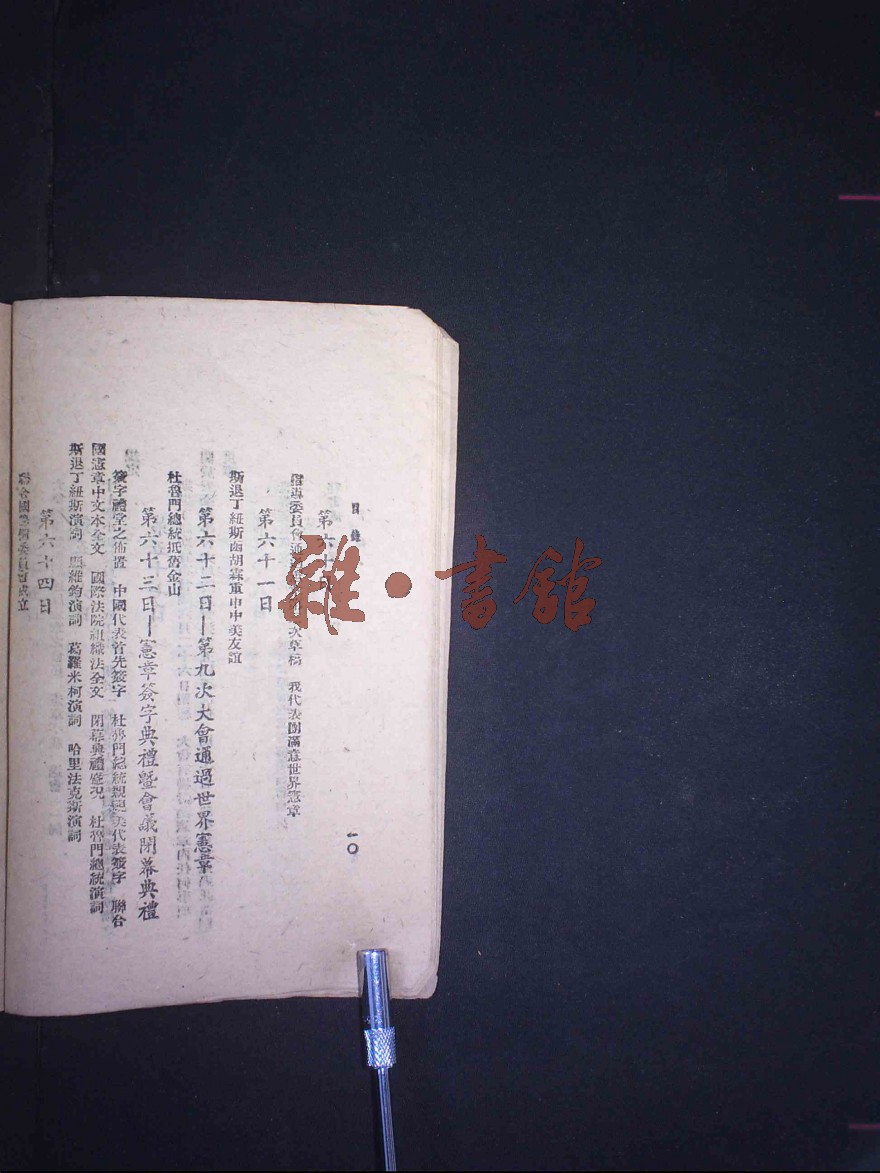 目錄
一〇
第六十
指導委員會通 次草稿 我代表團滿意世界憲章
第六十一日
斯退丁紐斯函胡霖重申中美友誼
第六十二日—第九次大會通過世界憲章
杜魯門總統抵舊金山
第六十三日—憲章簽字典禮暨會議閉幕典禮
簽字禮堂之佈置 中國代表首先簽字 杜魯門總統親睹美代表簽字 聯合
國憲章中文本全文 國際法院組織法全文 閉幕典禮盛況 杜魯門總統演詞
斯退丁紐斯演詞 顧維鈞演詞 葛羅米柯演詞 哈里法克斯演詞
第六十四日
聯合國 委員會成立
雜·書館